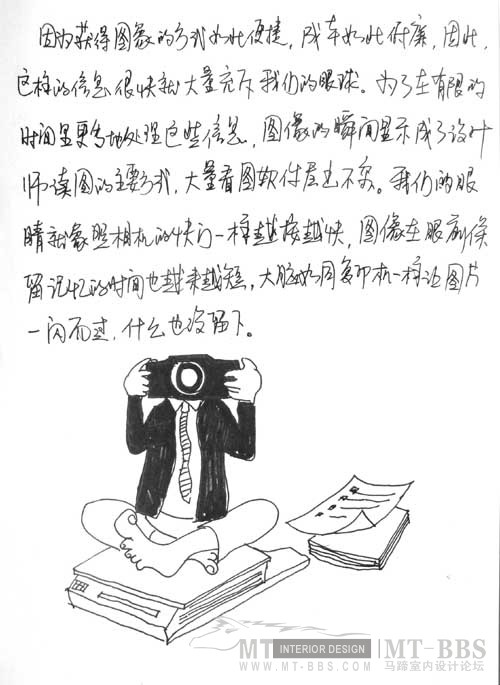 因为获得图象的方式如此便捷，成本如此低廉，因此，
这样的信息很快就大量充斥我们的眼球。为了在有限的
时间里更多地处理这些信息，图像的瞬间显示成了设计
师读图的主要方式，大量看图软件层出不穷。我们的眼
睛就象照相机的快门一样越按越快，图像在眼前停
留记忆的时间也越来越短，大脑如同复印机一样让图片
一闪而过，什么也没留下。
MT INTERIOR DESIGN MT-BBS
WWW.MT-BBS.COM 马蹄室内设计论坛